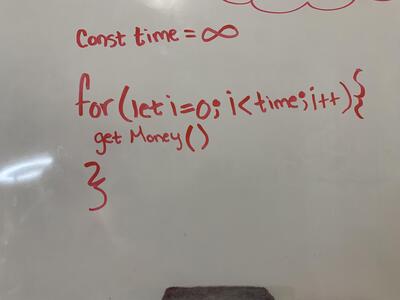 Const time = ∞
for (let i=0; i<time; i++) {
get Money()
}